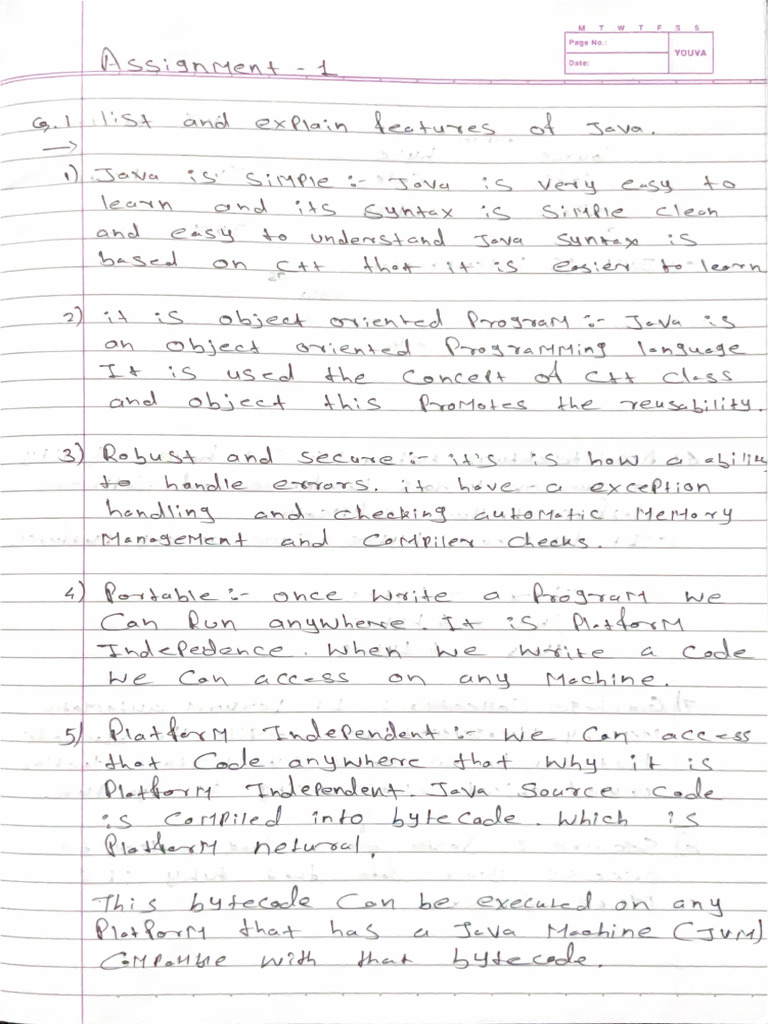 M T W T F S S
Page No.:
Date:
YOUVA
Assignment - 1
Q.1 list and explain features of Java.
→
1) Java is simple :- Java is very easy to
learn and its syntax is simple clean
and easy to understand Java syntax is
based on C++ that it is easier to learn
2) it is object oriented program :- Java is
an object oriented programming language
It is used the concept of C++ class
and object this promotes the reusability.
3) Robust and secure :- it's is how a ability
to handle errors. it have a exception
handling and checking automatic memory
management and compiler checks.
4) Portable :- once write a program we
can run anywhere. It is platform
Indepedence. when we write a code
we can access on any machine.
5) Platform Independent :- we can access
that code anywhere that why it is
platform Independent. Java source code
is compiled into bytecode. which is
platform netural.
This bytecode can be executed on any
platform that has a Java Machine (JVM)
with that bytecode.